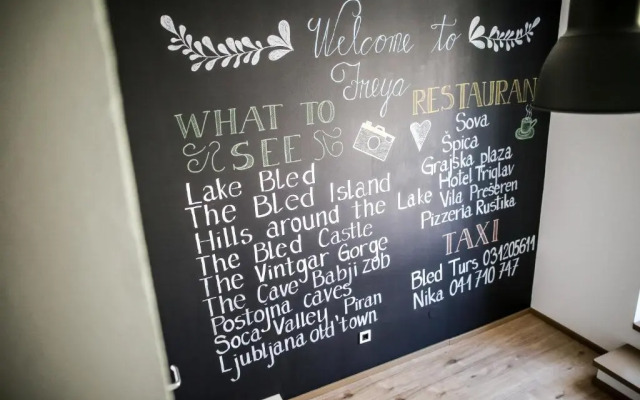 Welcome to
Freya
WHAT TO
SEE
Lake Bled
The Bled Island
Hills around the Lake
The Bled Castle
The Vintgar Gorge
The Cave Babji zob
Postojna caves
Soca Valley, Piran
Ljubljana old town
RESTAURAN
Sova
Špica
Grajska plaza
Hotel Triglav
Vila Prešeren
Pizzeria Rustika
TAXI
Bled Turs 031205611
Nika 041 710 747